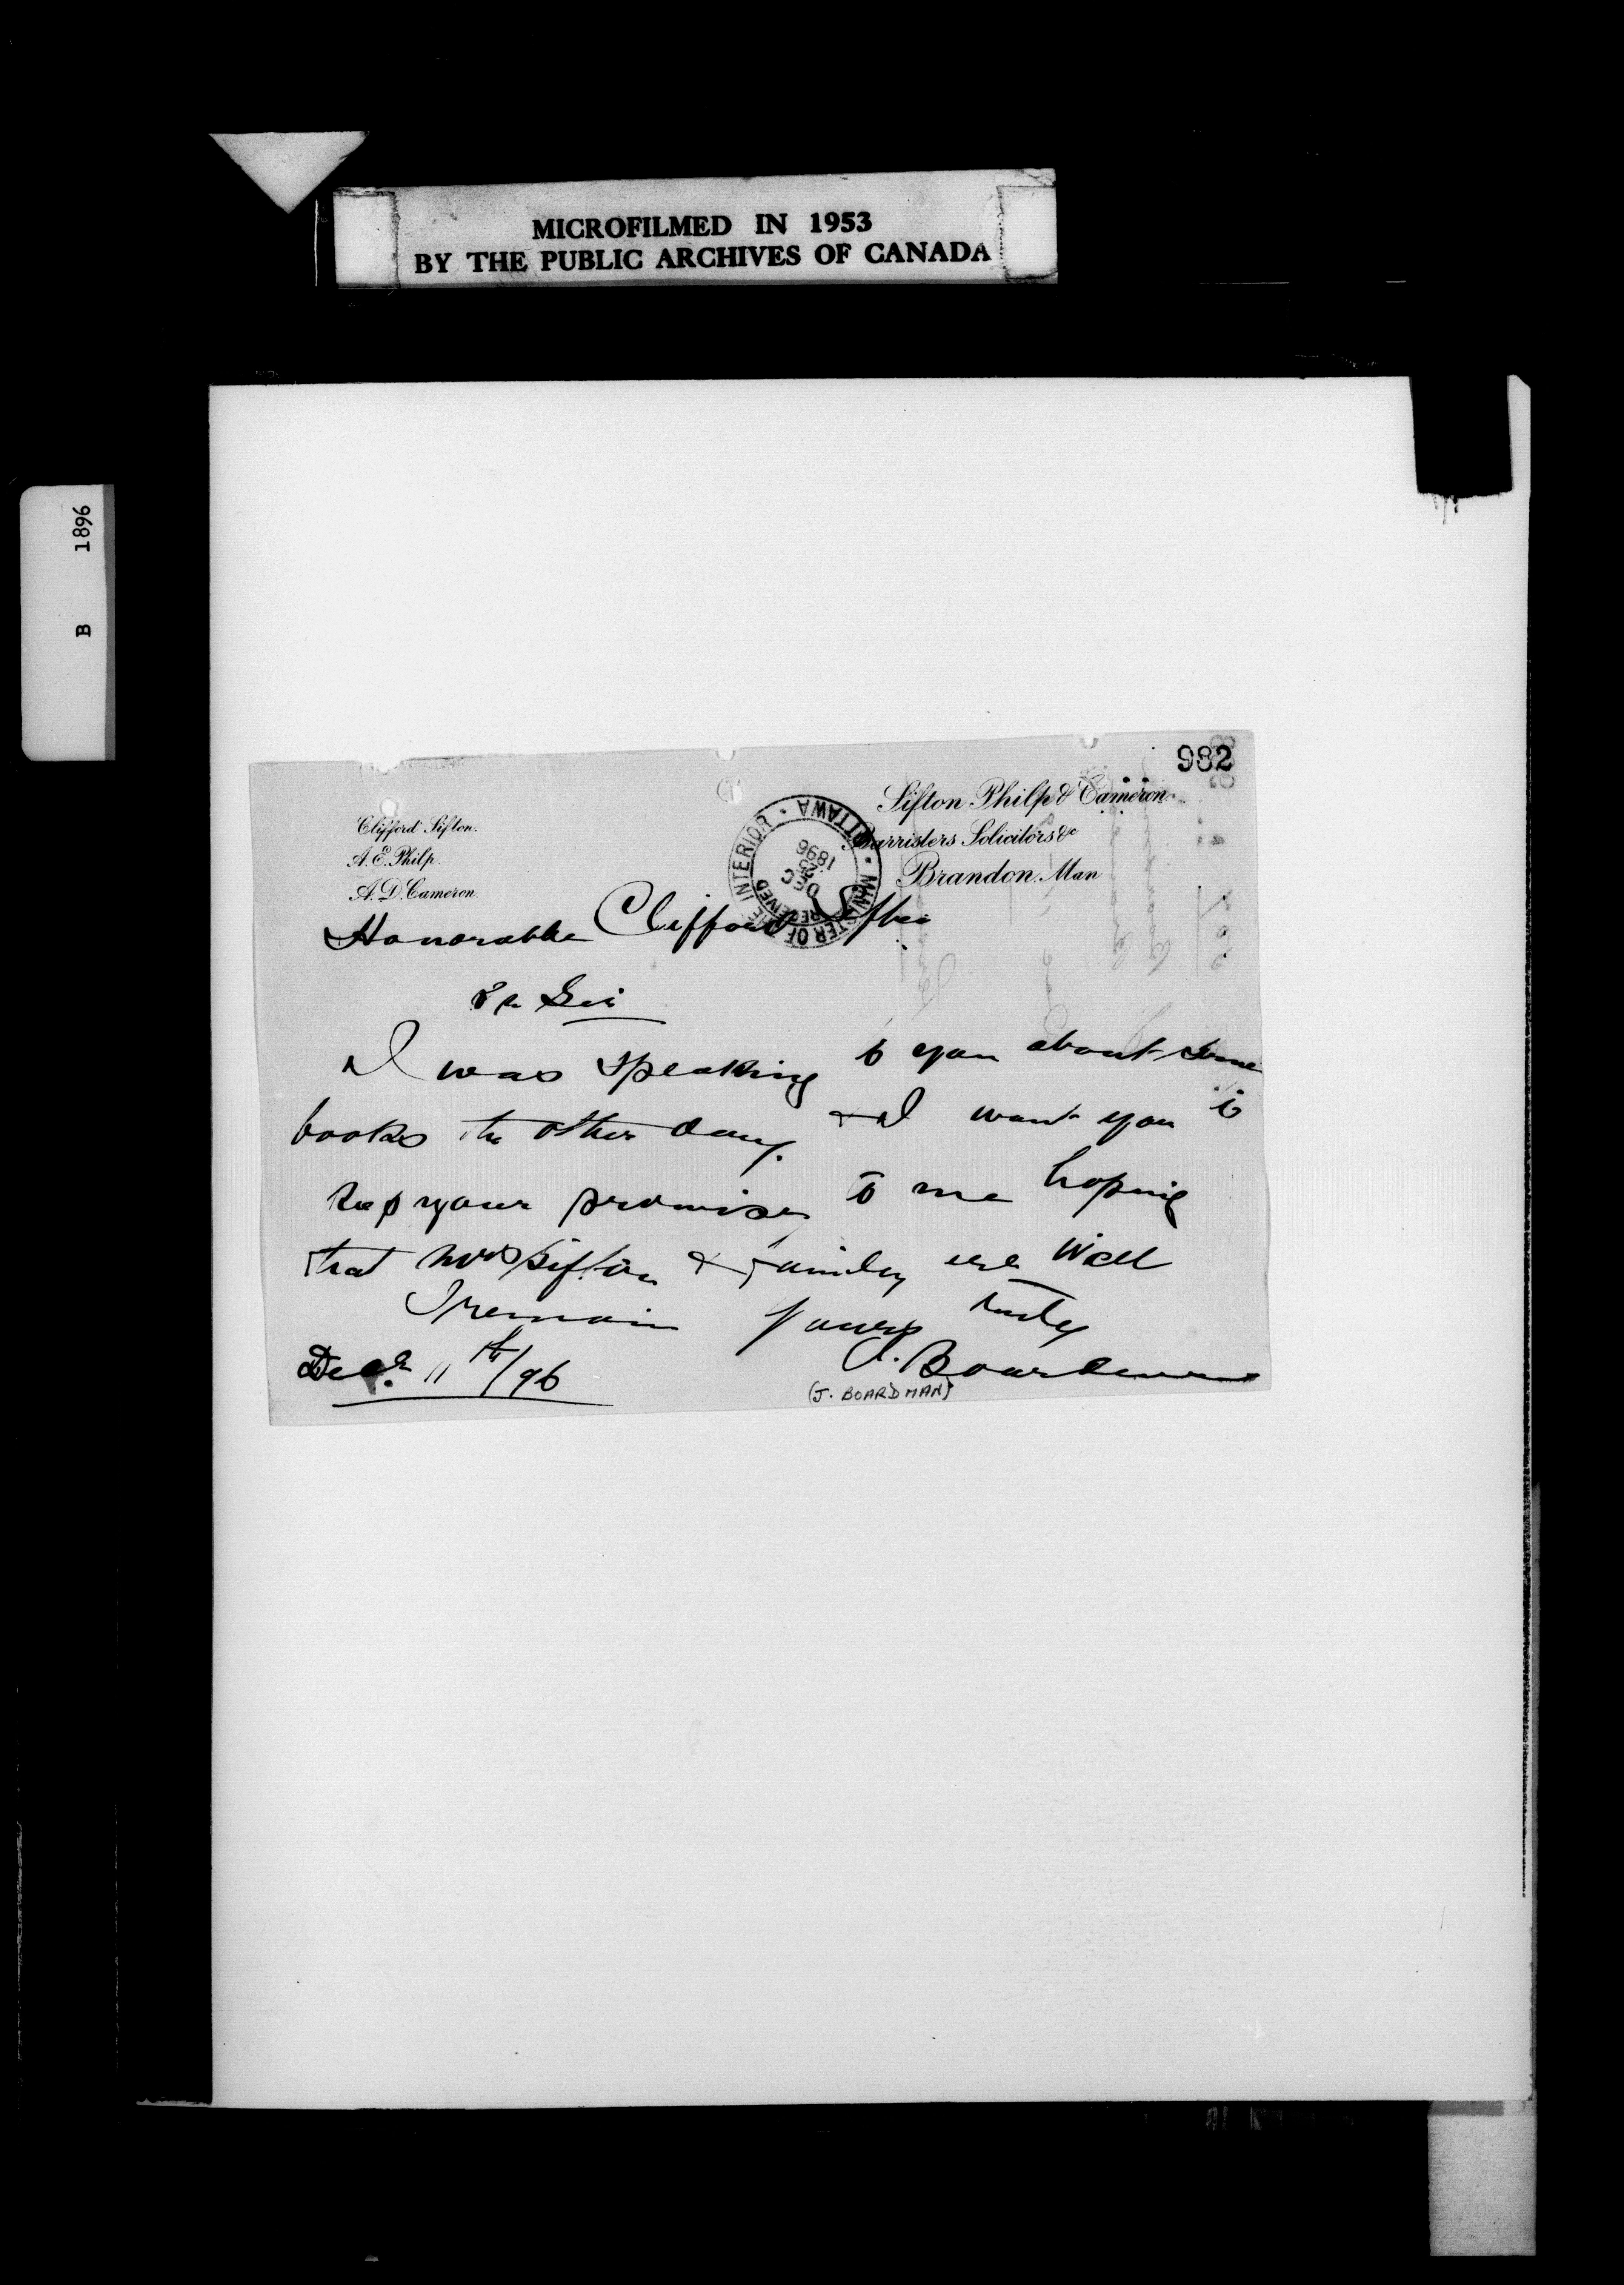 MICROFILMED IN 1953
BY THE PUBLIC ARCHIVES OF CANADA
B 1896
982
Sifton Philp & Cameron
Barristers Solicitors &c
Brandon. Man
Clifford Sifton.
A. E. Philp.
A. D. Cameron.
MINISTER OF THE INTERIOR • OTTAWA •
RECEIVED
DEC
23
1896
Honorable Clifford Sifton
Sir
I was speaking to you about some
books the other day. & I want you to
kep your promise to me hoping
that Mrs Sifton & family are well
I remain yours truly
J. Boardman
Dec. 11th/96
(J. BOARDMAN)